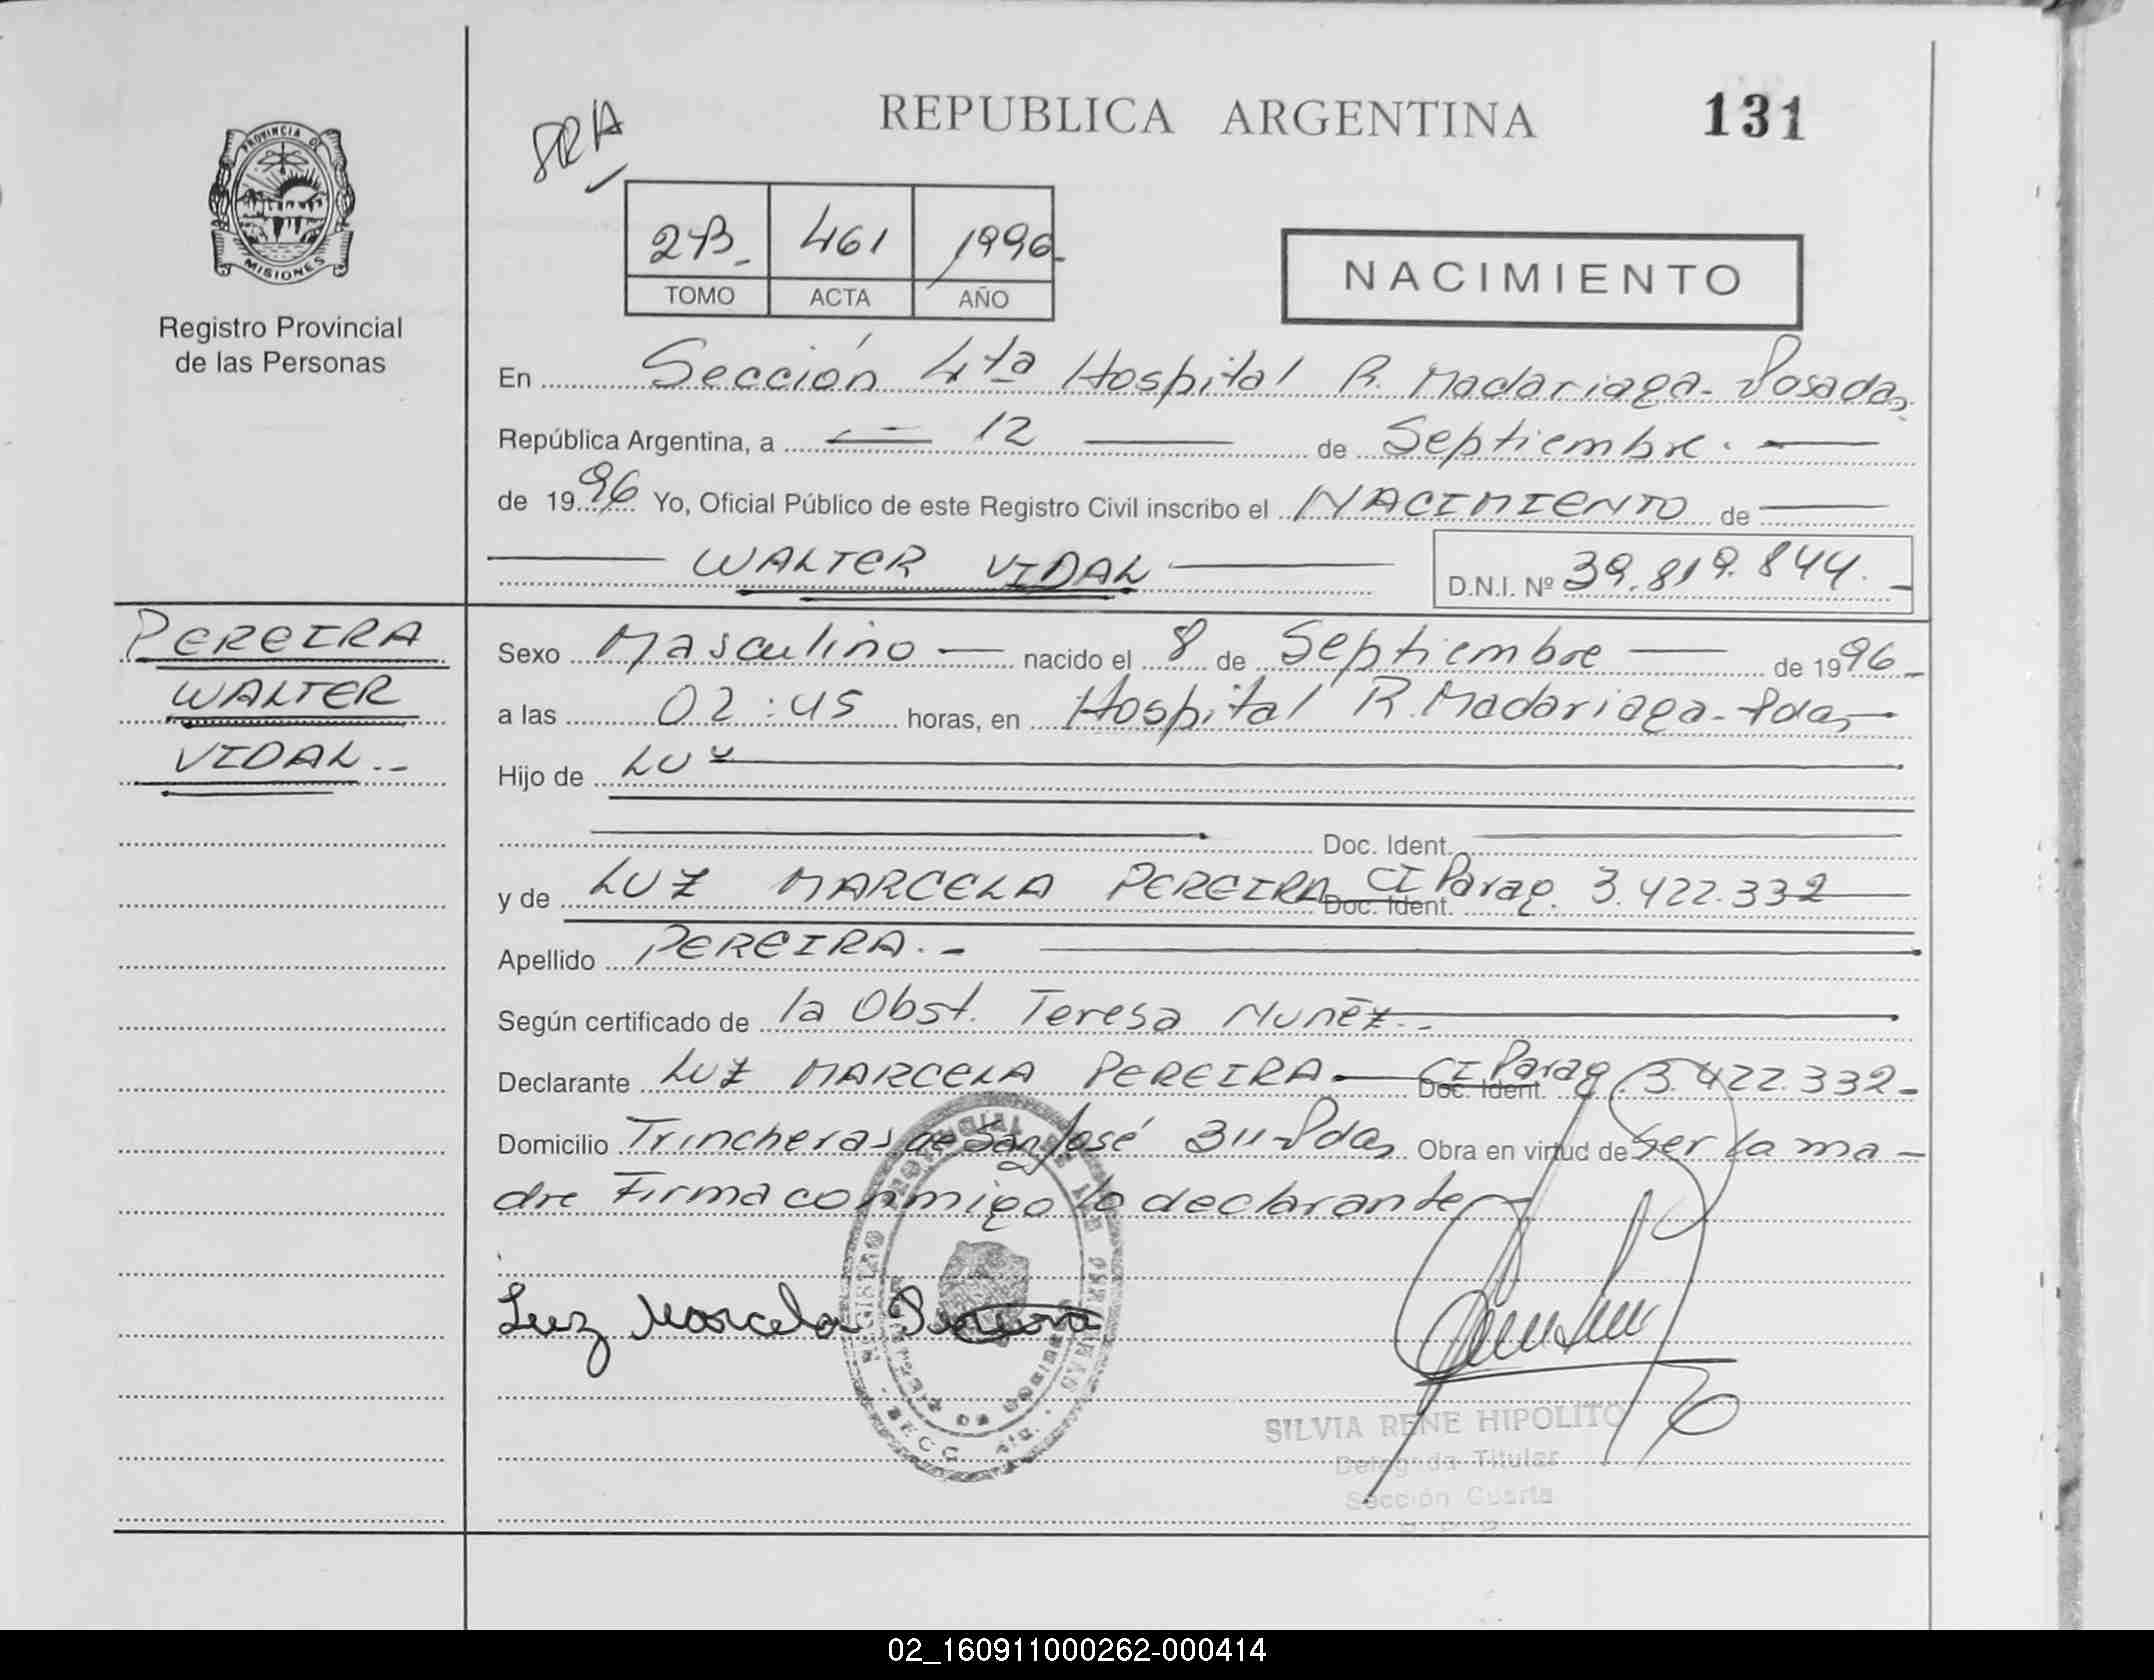 PROVINCIA DE
MISIONES
Registro Provincial
de las Personas
REPUBLICA ARGENTINA
131
2B_ 461 1996.
TOMO ACTA AÑO
NACIMIENTO
En Sección 4ta Hospital R. Madariaga - Posadas
República Argentina, a 12 de Septiembre.
de 1996 Yo, Oficial Público de este Registro Civil inscribo el NACIMIENTO de
WALTER VIDAL D.N.I. Nº 39.819.844.
PEREIRA
WALTER
VIDAL
Sexo Masculino nacido el 8 de Septiembre de 1996
a las 02:45 horas, en Hospital R. Madariaga - Pdas
Hijo de LU
Doc. Ident.
y de LUZ MARCELA PEREIRA Doc. Ident. CI Parag. 3.422.332
Apellido PEREIRA.-
Según certificado de la Obst. Teresa Nuñez
Declarante LUZ MARCELA PEREIRA Doc. Ident. CI Parag. 3.422.332
Domicilio Trincheras de San José Pdas Obra en virtud de Ser la ma-
dre Firma conmigo la declarante
Luz Marcela Pereira
SILVIA RENE HIPOLITO
Delegada Titular
Sección Cuarta
02_160911000262-000414